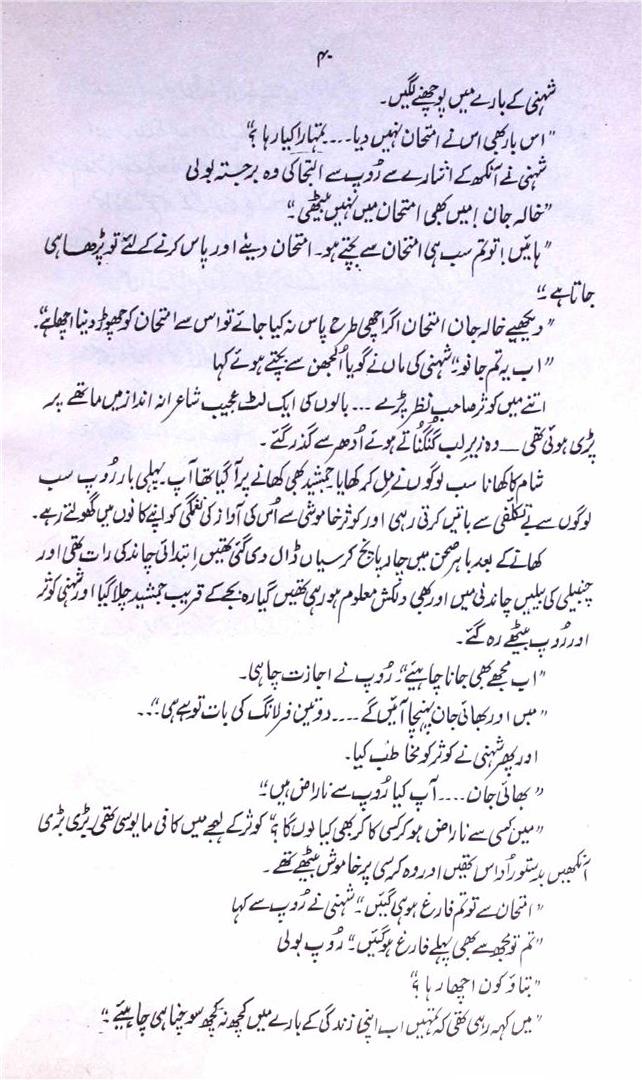 ۴۰
شہنی کے بارے میں پوچھنے لگیں۔
"اس بار بھی اس نے امتحان نہیں دیا .... تمہارا کیا رہا ؟"
شہنی نے آنکھ کے اشارے سے رُوپ سے التجا کی وہ برجستہ بولی
"خالہ جان! میں بھی امتحان میں نہیں بیٹھی۔"
"ہائیں! تو تم سب ہی امتحان سے بچتے ہو۔ امتحان دینے اور پاس کرنے کے لئے تو پڑھا ہی
جاتا ہے۔"
"دیکھیے خالہ جان امتحان اگر اچھی طرح پاس نہ کیا جائے تو اس سے امتحان کو چھوڑ دینا اچھا ہے"۔
"اب یہ تم جانو" شہنی کی ماں نے گویا اُلجھن سے بچتے ہوئے کہا
اتنے میں کوثر صاحب نظر پڑے ... بالوں کی ایک لٹ عجیب شاعرانہ انداز میں ماتھے پر
پڑی ہوئی تھی ــ وہ زیر لب گنگناتے ہوئے اُدھر سے گذر گئے۔
شام کا کھانا سب لوگوں نے مِل کر کھایا۔ جمشید بھی کھانے پر آ گیا تھا آپ۔ پہلی بار رُوپ سب
لوگوں سے بے تکلّفی سے باتیں کرتی رہی اور کوثر خاموشی سے اُس کی آواز کی نغمگی کو اپنے کانوں میں گھولتے رہے۔
کھانے کے بعد باہر صحن میں چار پانچ کرسیاں ڈال دی گئی تھیں اِبتدائی چاند کی رات تھی اور
چنبیلی کی بیلیں چاندنی میں اور بھی دلکش معلوم ہو رہی تھیں گیارہ بجے کے قریب جمشید چلا گیا اور شہنی کوثر
اور رُوپ بیٹھے رہ گئے۔
"اب مجھے بھی جانا چاہیئے" رُوپ نے اجازت چاہی۔
"میں اور بھائی جان پہنچا آئیں گے .... دو تین فرلانگ کی بات تو ہے ہی"...
اور پھر شہنی نے کوثر کو مخاطب کیا۔
"بھائی جان .... آپ کیا رُوپ سے ناراض ہیں"
"میں کسی سے ناراض ہو کر کسی کا کر بھی کیا لوں گا؟" کوثر کے لہجے میں کافی مایوسی تھی۔ بڑی بڑی
آنکھیں بدستور اُداس تھیں اور وہ کرسی پر خاموش بیٹھے تھے۔
"امتحان سے تو تم فارغ ہو ہی گئیں" شہنی نے رُوپ سے کہا
"تم تو مجھ سے بھی پہلے فارغ ہو گئیں" رُوپ بولی
"بتاؤ کون اچھا رہا ؟"
"میں کہہ رہی تھی کہ تمہیں اب اپنی زندگی کے بارے میں کچھ نہ کچھ سوچنا ہی چاہیئے۔"